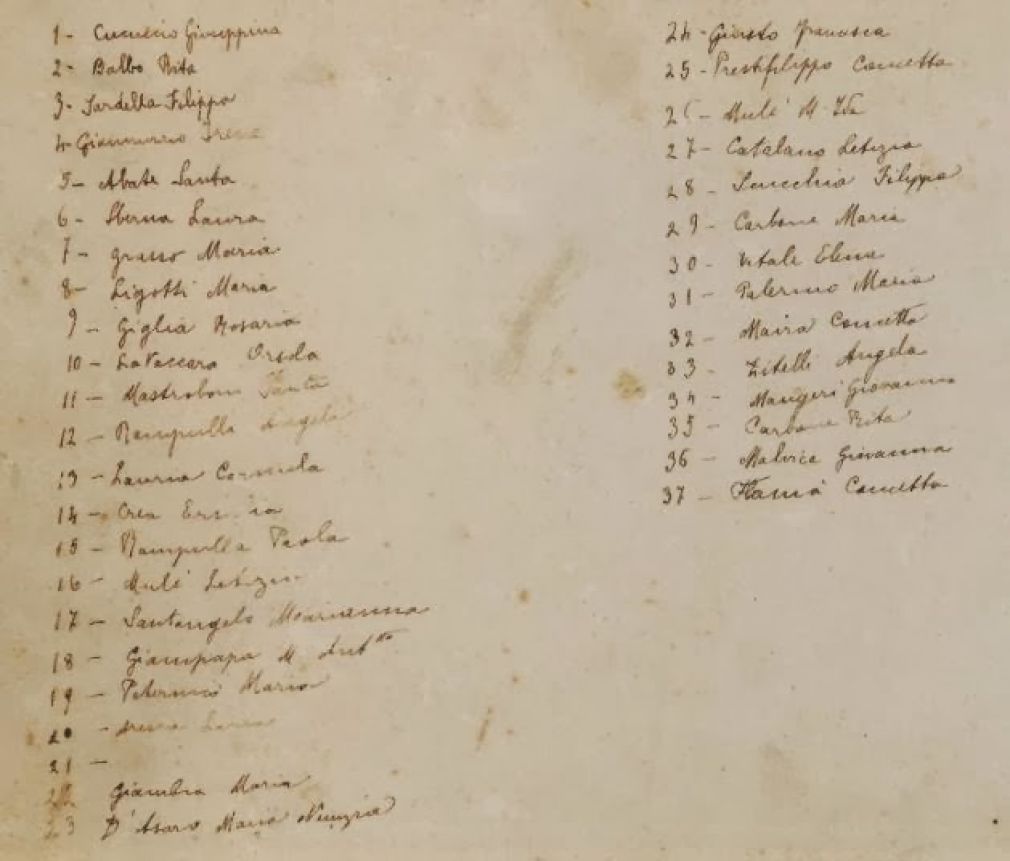 1- Giuseppina
2- Balbo Rita
3- Sardella Filippa
4- Irene
5- Abate Santa
6- Sberna Laura
7- grasso Maria
8- Ligotti Maria
9- Giglia Rosaria
10- La Vaccara Orsola
11- Mastroboni Santa
12- Rampulla Angela
13- Lauria Carmela
14- Crea
15- Rampulla Paola
16- Mulé Letizia
17- Santangelo Marianna
18- Giampapa M. Ant.tta
19- Maria
20-
21-
22 Giambra Maria
23 D'Asaro Maria Nunzia
24- Giusto Francesca
25- Prestifilippo Concetta
26- Mulé M. Ida
27- Catalano Letizia
28- Filippa
29- Carbone Maria
30- Vitale Elena
31- Palermo Maria
32- Maira Concetta
33- Zitelli Angela
34- Maugeri Giovanna
35- Carbone Rita
36- Malvica Giovanna
37- Flamà Concetta